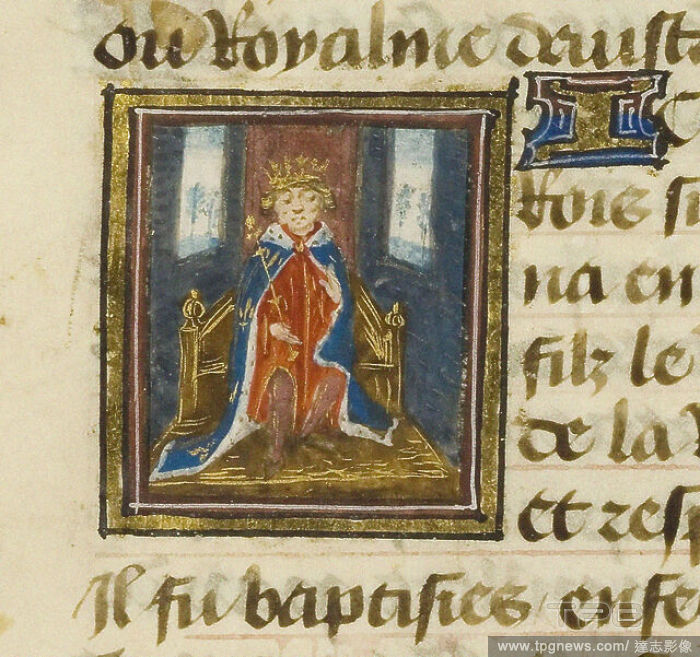 ou Royalme daust
T
Rois si
na en
filz le
de la
et resp
Il fu baptisies enfe
TPG
www.tpgnews.com/ 達志影像